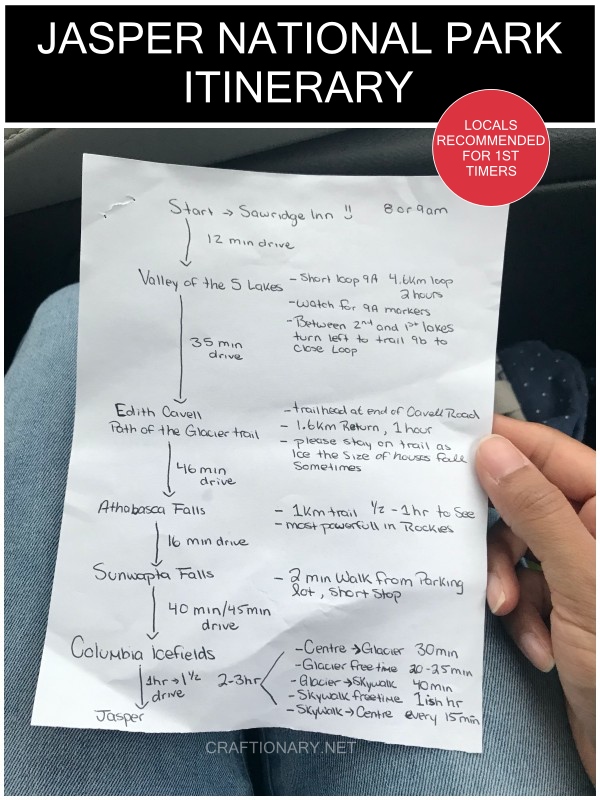 JASPER NATIONAL PARK
ITINERARY
LOCALS
RECOMMENDED
FOR 1ST
TIMERS
Start → Sawridge Inn !! 8 or 9am
12 min drive
Valley of the 5 Lakes - Short loop 9A 4.6km loop
2 hours
- Watch for 9A markers
- Between 2nd and 1st lakes
turn left to trail 9b to
close Loop
35 min
drive
Edith Cavell
Path of the Glacier trail
- trailhead at end of Cavell Road
- 1.6km Return, 1 hour
- please stay on trail as
Ice the Size of houses fall
Sometimes
46 min
drive
Athabasca Falls - 1km trail 1/2 - 1hr to See
- most powerfull in Rockies
16 min drive
Sunwapta Falls - 2 min Walk from Parking
lot, Short Stop
40 min/45min
drive
Columbia Icefields
2-3hr
- Centre → Glacier 30min
- Glacier freetime 20-25min
- Glacier → Skywalk 40min
- Skywalk freetime 1ish hr
- Skywalk → Centre every 15min
1hr → 1 1/2
drive
Jasper
CRAFTIONARY.NET